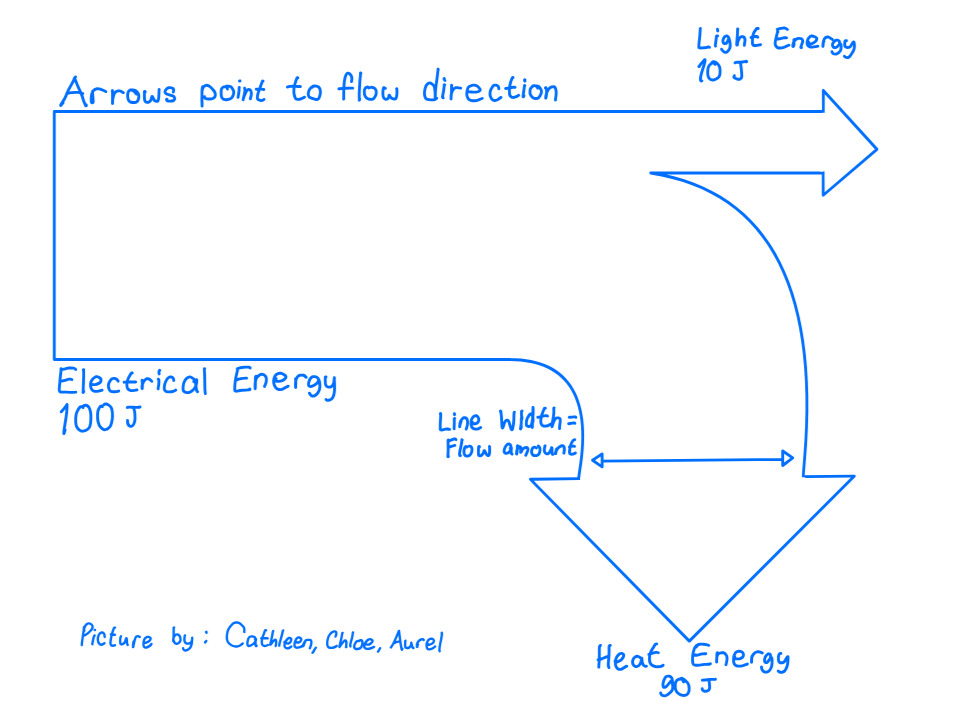 Light Energy
10 J
Arrows point to flow direction
Electrical Energy
100 J
Line Width =
Flow amount
Picture by: Cathleen, Chloe, Aurel
Heat Energy
90 J